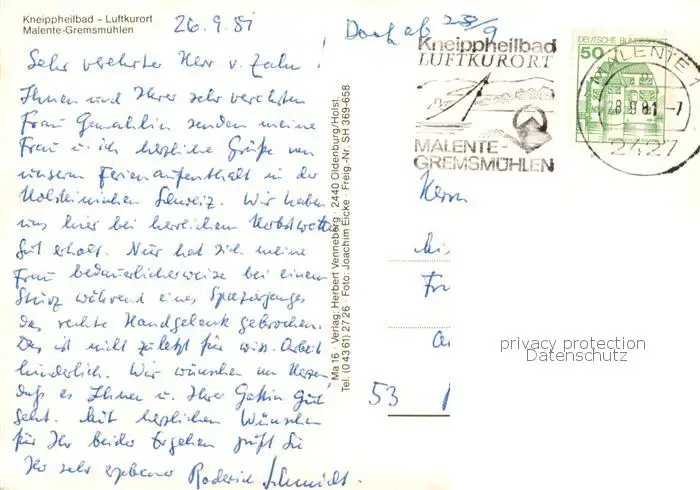 Kneippheilbad – Luftkurort
Malente-Gremsmühlen
26.9.81
Sehr verehrter Herr v. Zahn!
Ihnen und Ihrer sehr verehrten
Frau Gemahlin senden meine
Frau u. ich herzliche Grüße von
unserem Ferienaufenthalt in der
Holsteinischen Schweiz. Wir haben
uns hier bei herrlichem Herbstwetter
gut erholt. Nur hat sich meine
Frau bedauerlicherweise bei einem
Sturz während eines Spazierganges
das rechte Handgelenk gebrochen.
Das ist nicht zuletzt für wiss. Arbeit
hinderlich. Wir wünschen von Herzen,
daß es Ihnen u. Ihrer Gattin gut
geht. Mit herzlichen Wünschen
für Ihr beider Ergehen grüßt Sie
Ihr sehr ergebener Roderich Schmidt.
Ma 16 · Verlag: Herbert Venneberg · 2440 Oldenburg/Holst.
Tel. (0 43 61) 27 26 · Foto: Joachim Eicke · Freig.-Nr. SH 369-658
Kneippheilbad
LUFTKURORT
MALENTE-
GREMSMÜHLEN
DEUTSCHE BUNDESPOST
50
MALENTE 1
28.9.81-7
2427
Herrn
53
privacy protection
Datenschutz